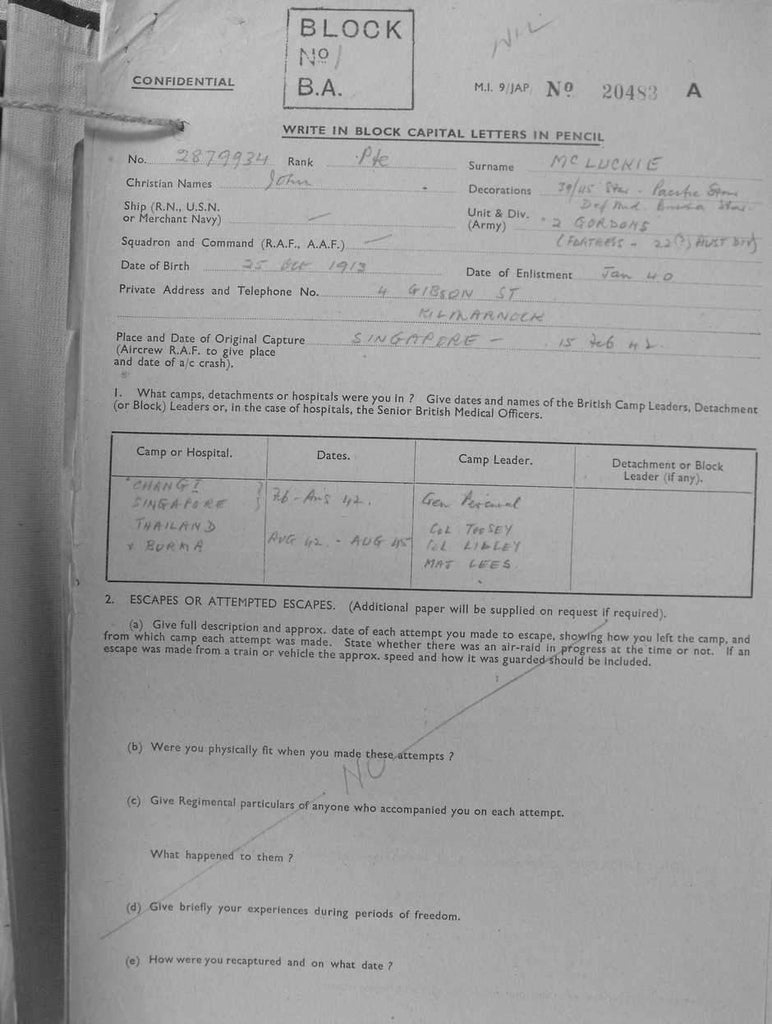 BLOCK
No 1
B.A.
NIL
CONFIDENTIAL
M.I. 9/JAP No 20483 A
WRITE IN BLOCK CAPITAL LETTERS IN PENCIL
No. 2879934 Rank Pte Surname MCLUCKIE
Christian Names John Decorations 39/45 Star - Pacific Star
Def Med Burma Star
Ship (R.N., U.S.N. or Merchant Navy) — Unit & Div. (Army) 2 GORDONS
Squadron and Command (R.A.F., A.A.F.) — (FORTRESS - 22(?) AUST DIV)
Date of Birth 25 1913 Date of Enlistment Jan 40
Private Address and Telephone No. 4 GIBSON ST
KILMARNOCK
Place and Date of Original Capture SINGAPORE - 15 Feb 42
(Aircrew R.A.F. to give place
and date of a/c crash).
1. What camps, detachments or hospitals were you in ? Give dates and names of the British Camp Leaders, Detachment
(or Block) Leaders or, in the case of hospitals, the Senior British Medical Officers.
Camp or Hospital. Dates. Camp Leader. Detachment or Block Leader (if any).
CHANGI
SINGAPORE Feb - Aug 42. Gen Percival
THAILAND COL TOOSEY
+ BURMA AUG 42 - AUG 45 COL LILLEY
MAJ LEES
2. ESCAPES OR ATTEMPTED ESCAPES. (Additional paper will be supplied on request if required).
(a) Give full description and approx. date of each attempt you made to escape, showing how you left the camp, and
from which camp each attempt was made. State whether there was an air-raid in progress at the time or not. If an
escape was made from a train or vehicle the approx. speed and how it was guarded should be included.
(b) Were you physically fit when you made these attempts ?
NO
(c) Give Regimental particulars of anyone who accompanied you on each attempt.
What happened to them ?
(d) Give briefly your experiences during periods of freedom.
(e) How were you recaptured and on what date ?